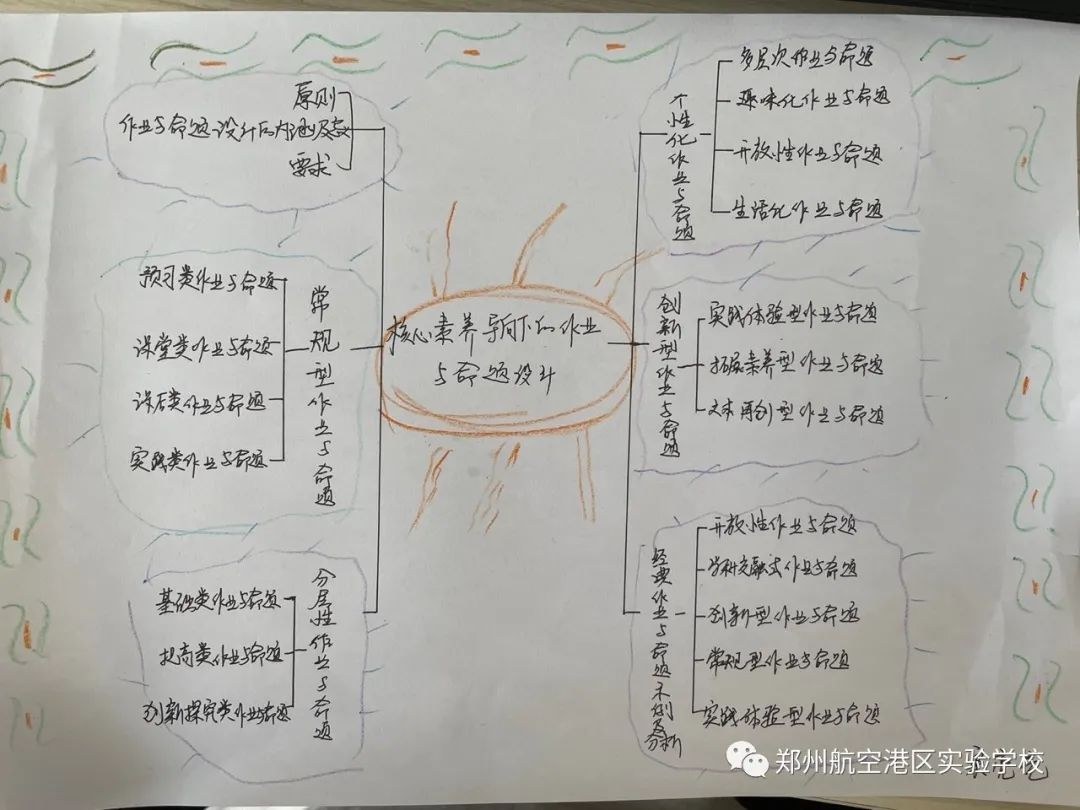 核心素养导向下的作业
与命题设计
原则
作业与命题设计的内涵及
要求
常规型作业与命题
预习类作业与命题
课堂类作业与命题
课后类作业与命题
实践类作业与命题
分层性作业与命题
基础类作业与命题
提高类作业与命题
创新探究类作业与命题
个性化作业与命题
多层次作业与命题
趣味化作业与命题
开放性作业与命题
生活化作业与命题
创新型作业与命题
实践体验型作业与命题
拓展素养型作业与命题
文本再创型作业与命题
经典作业与命题示例及
分析
开放性作业与命题
学科交融式作业与命题
创新型作业与命题
常规型作业与命题
实践体验型作业与命题
郑州航空港区实验学校